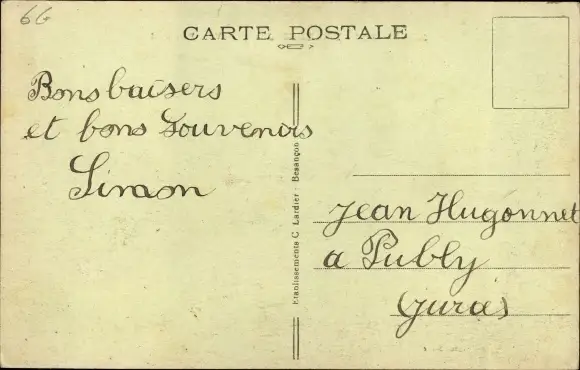 66
CARTE POSTALE
Bons baisers
et bons souvenirs
Simon
Etablissements C. Lardier - Besançon
Jean Hugonnet
a Publy
(Jura)